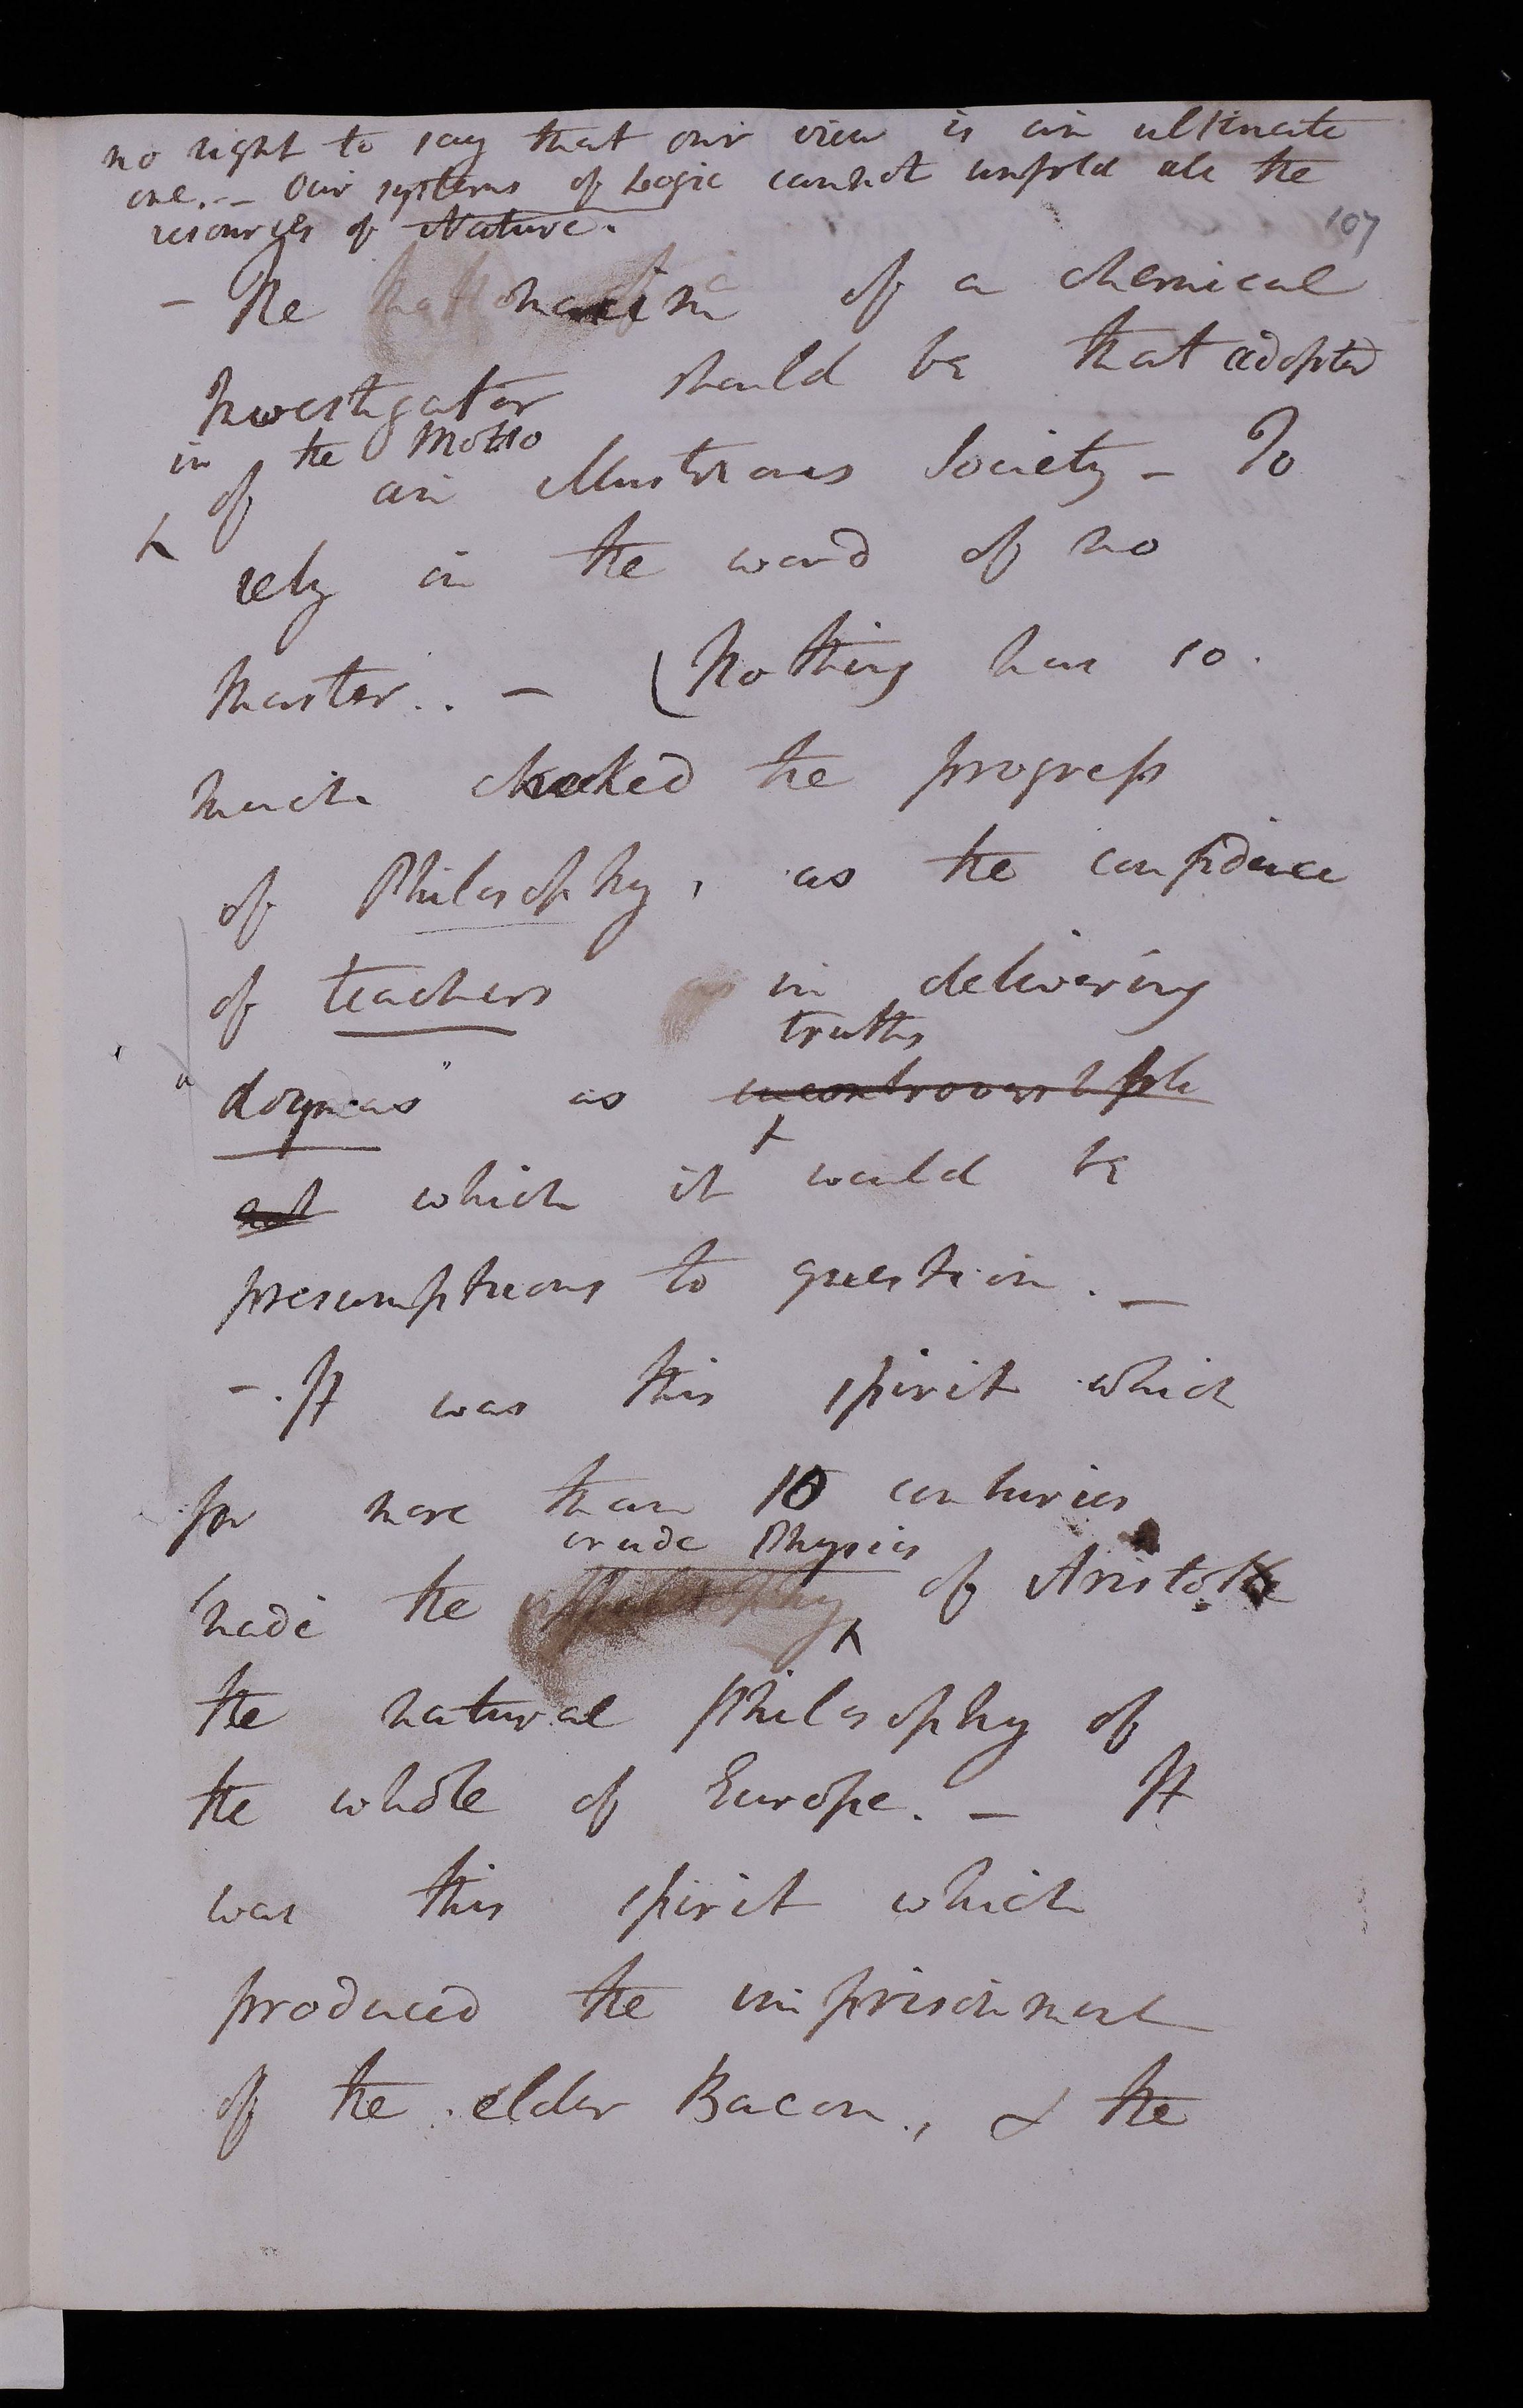 no right to say that our view is an ultimate
one. - Our systems of Logic cannot unfold all the
resources of Nature.
107
- The maxim of a chemical
Investigator should be that adopted
in the Motto
of an illustrious Society - To
rely on the word of no
Master.. - (Nothing has so
much checked the progress
of Philosophy, as the confidence
of teachers in delivering
truths
"dogmas" as incontrovertible
not which it would be
presumptuous to question. -
- It was this spirit which
for more than 10 centuries
crude Physics
made the philosophy of Aristotle
the natural philosophy of
the whole of Europe. - It
was this spirit which
produced the imprisonment
of the elder Bacon, & the